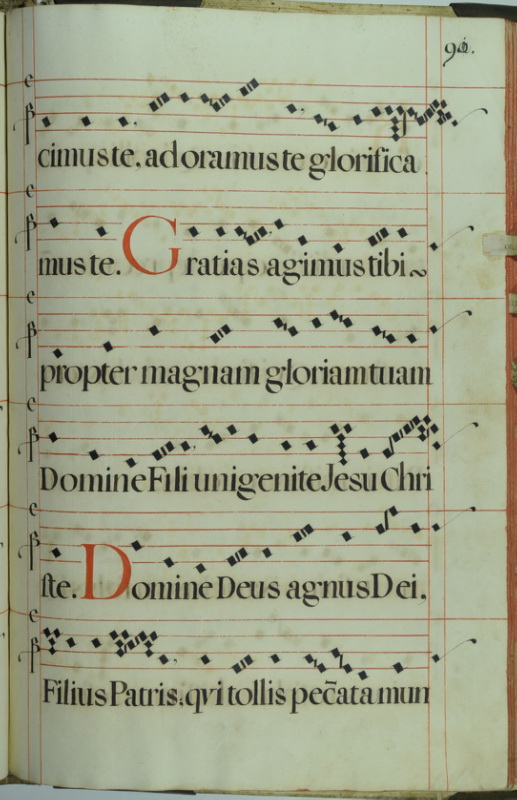 cimus te. adoramus te glorifica
mus te. Gratias agimus tibi~
propter magnam gloriam tuam
Domine Fili unigenite Jesu Chri
ste. Domine Deus agnus Dei.
Filius Patris, qvi tollis pec̄ata mun